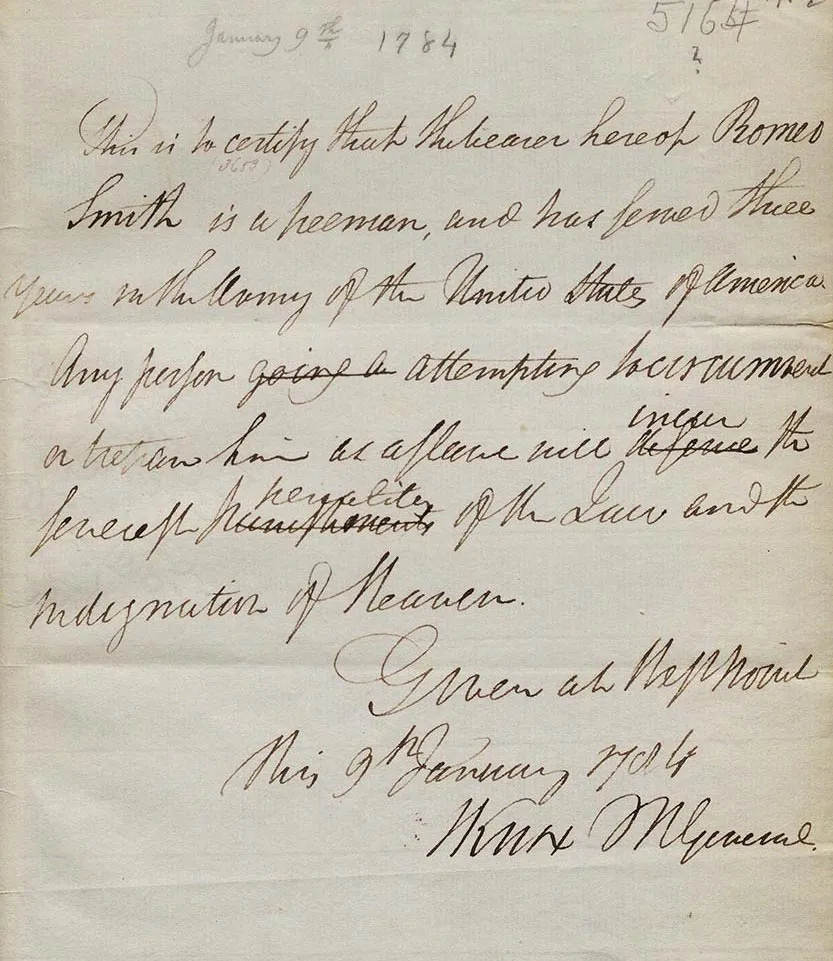 January 9th 1784
5164
?
This is to certify that the bearer hereof Romeo
(3653)
Smith is a freeman, and has served three
years in the Army of the United States of America
Any person going a attempting to circumvent
or trepan him as a slave will incur deserve the
severest penalties punishments of the Law and the
indignation of Heaven.
Given at West Point
this 9th January 1784
HKnox MGeneral.